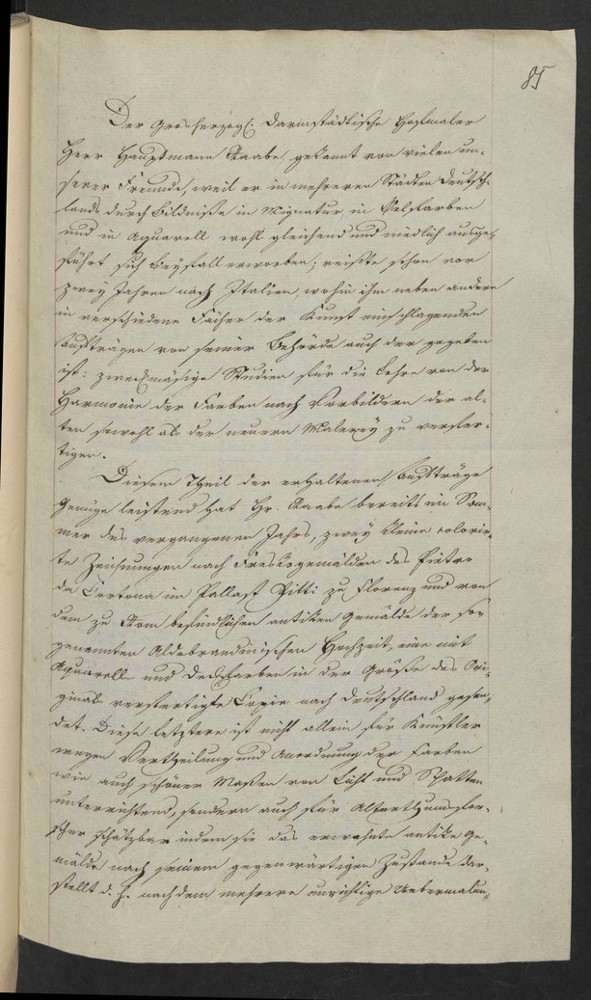 85
Der Grosherzogl: Darmstädtische Hofmaler
Herr Hauptmann Raabe, gekannt von vielen un-
serer Freunde, weil er in mehreren Städten Deutsch-
lands durch Bildniße in Mignatur, in Oelfarben
und in Aquarell wohl gleichend und niedlich ausge-
führt sich Beyfall erworben; reiste schon vor
zwey Jahren nach Italien, wohin ihm neben andern
in verschiedene Fächer der Kunst einschlagenden
Aufträgen von seiner Behörde auch der gegeben
ist: zweckmäsige Studien für die Lehre von der
Harmonie der Farben nach Vorbildern der al-
ten sowohl als der neuern Malerey zu verfer-
tigen.
Diesem Theil der erhaltenen Aufträge
Genüge leistend hat Hr. Raabe bereits im Som-
mer des vergangenen Jahrs, zwey kleine colorir-
te Zeichnungen nach Frescogemälden des Pietro
da Cortona im Pallast Pitti zu Florenz und von
dem zu Rom befindlichen antiken Gemälde der so-
genannten Aldobrandinischen Hochzeit, eine mit
Aquarell- und Deckfarben in der Größe des Ori-
ginals verfertigte Copie nach Deutschland gesen-
det. Diese letztere ist nicht allein für Künstler
wegen Vertheilung und Anordnung der Farben
wie auch schöner Maßen von Licht und Schatten
unterrichtend, sondern auch für Alterthumsfor-
scher schätzbar indem sie das erwähnte antike Ge-
mälde nach seinem gegenwärtigen Zustande dar-
stellt d. h. nachdem mehrere unrichtige Uebermalun-